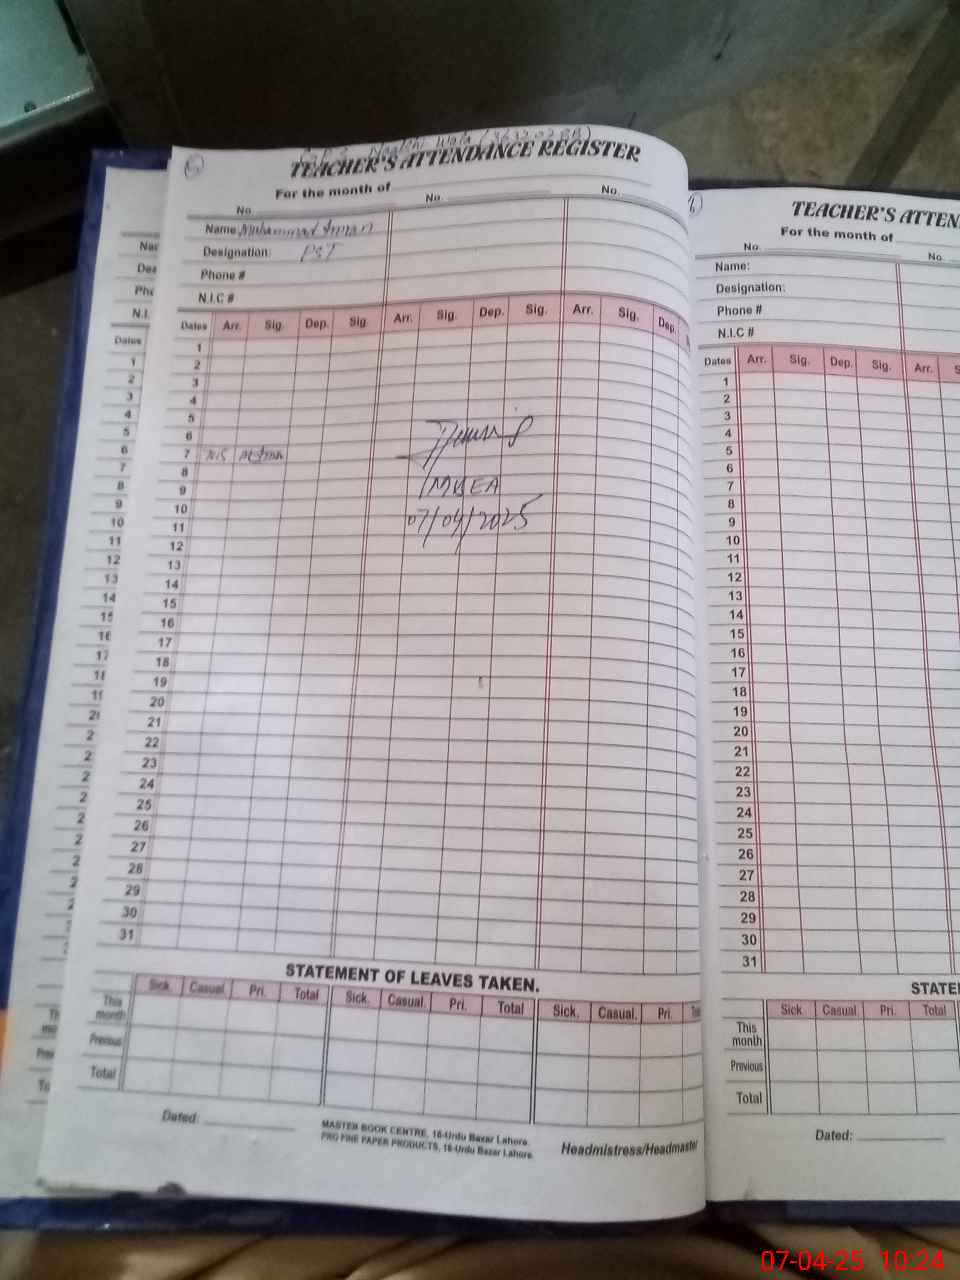 TEACHER'S ATTENDANCE REGISTER
For the month of
No. No. No.
Name Muhammad
Designation: PST
Phone #
N.I.C #
Dates Arr. Sig. Dep. Sig. Arr. Sig. Dep. Sig. Arr. Sig. Dep.
1
2
3
4
5
6
7
8
9
10
11
12
13
14
15
16
17
18
19
20
21
22
23
24
25
26
27
28
29
30
31
MBEA
07/04/2025
STATEMENT OF LEAVES TAKEN.
Sick. Casual. Pri. Total Sick. Casual. Pri. Total Sick. Casual. Pri.
This month
Previous
Total
Dated:
MASTER BOOK CENTRE, 16-Urdu Bazar Lahore.
PRO FINE PAPER PRODUCTS, 16-Urdu Bazar Lahore.
Headmistress/Headmaster
TEACHER'S ATTEN
For the month of
No. No.
Name:
Designation:
Phone #
N.I.C #
Dates Arr. Sig. Dep. Sig. Arr. S
1
2
3
4
5
6
7
8
9
10
11
12
13
14
15
16
17
18
19
20
21
22
23
24
25
26
27
28
29
30
31
STATE
Sick. Casual. Pri. Total
This month
Previous
Total
Dated:
07-04-25 10:24